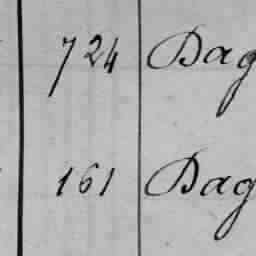 724 Dag
161 Dag